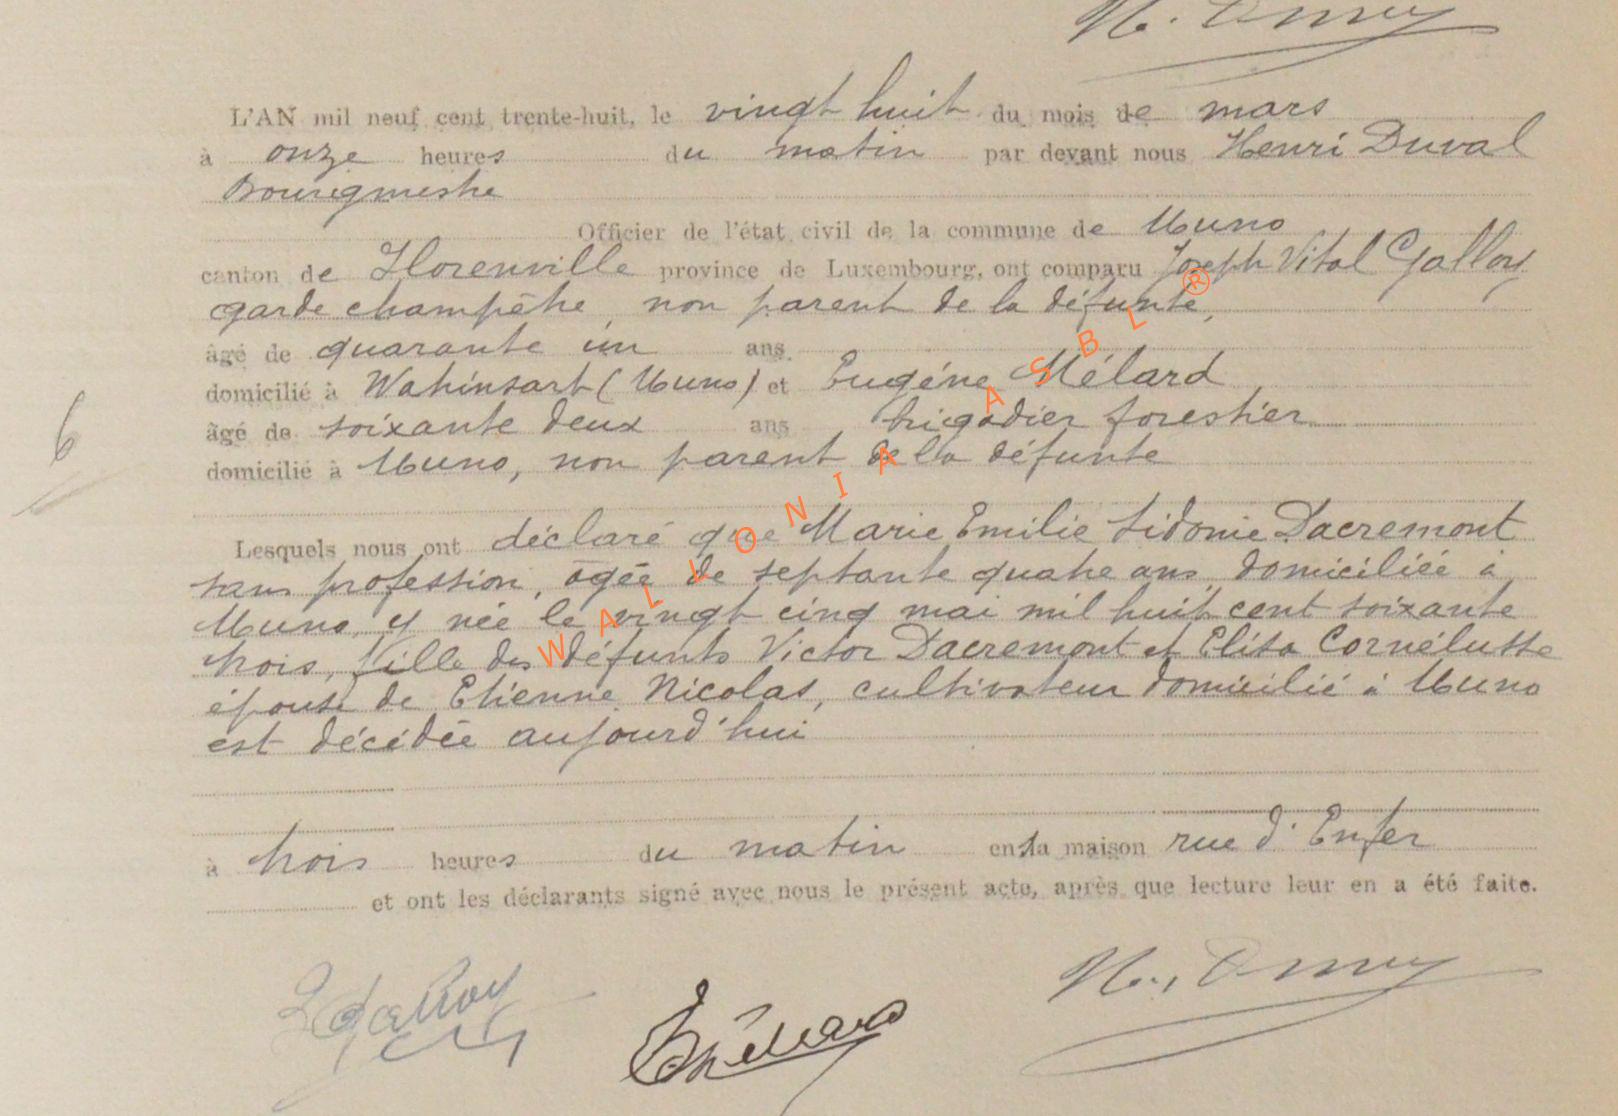 L'AN mil neuf cent trente-huit, le vingt huit du mois de mars
à onze heures du matin par devant nous Henri Duval
Bourgmestre
Officier de l'état civil de la commune de Muno
canton de Florenville province de Luxembourg, ont comparu Joseph Vital Galloy
garde champêtre, non parent de la défunte,
âgé de quarante un ans
domicilié à Watrinsart (Muno) et Eugène Mélard,
âgé de soixante deux ans brigadier forestier
domicilié à Muno, non parent de la défunte
6
Lesquels nous ont déclaré que Marie Emilie Sidonie Dacremont
sans profession, âgée de septante quatre ans, domiciliée à
Muno, y née le vingt cinq mai mil huit cent soixante
trois, fille des défunts Victor Dacremont et Elisa Cornélusse
épouse de Etienne Nicolas, cultivateur domicilié à Muno
est décédée aujourd'hui
à trois heures du matin en sa maison rue d'Enfer
et ont les déclarants signé avec nous le présent acte, après que lecture leur en a été faite.
WALLONIA ASBL ®